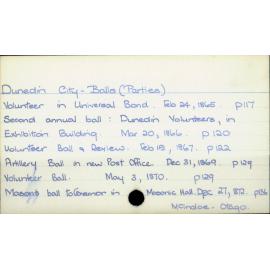 Dunedin City - Balls (Parties)
Volunteer in Universal Bond. Feb 24, 1865. p117
Second annual ball: Dunedin Volunteers, in
Exhibition Building. Mar 20, 1866. p120
Volunteer Ball & Review. Feb 15, 1867. p122
Artillery Ball in new Post Office. Dec 31, 1869. p129
Volunteer Ball. May 3, 1870. p129
Masonic ball to Governor in Masonic Hall. Dec 27, 1872. p136
McIndoe - Otago.